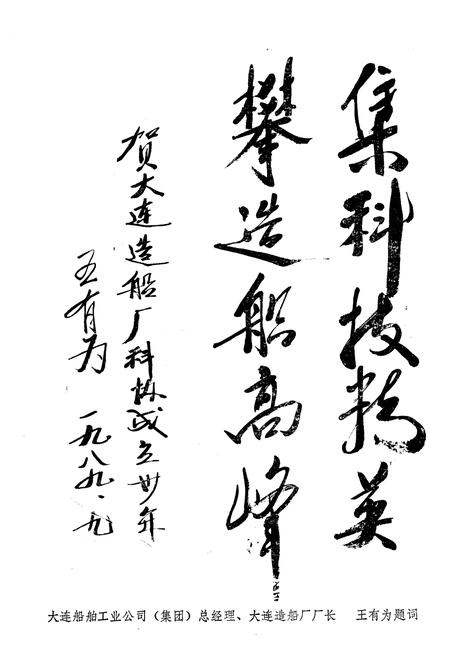 集科技精英
攀造船高峰
贺大连造船厂科协成立卅年
王有为 一九八九.九
大连船舶工业公司（集团）总经理、大连造船厂厂长 王有为题词